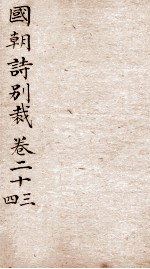 國朝詩別裁 卷二十三四